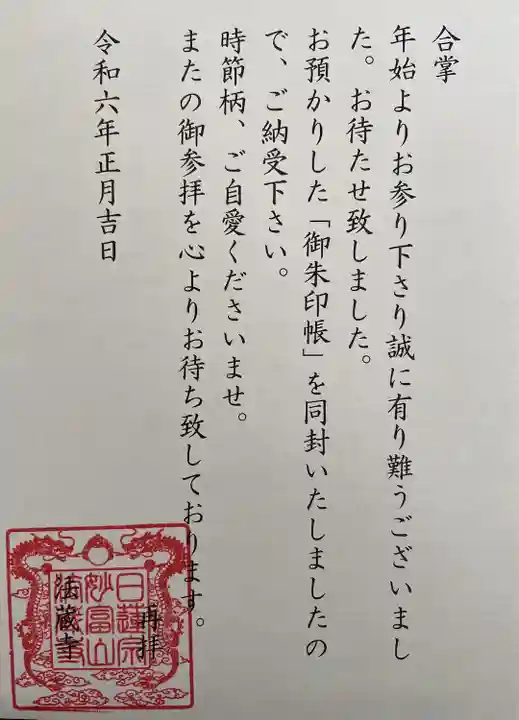 合掌
年始よりお参り下さり誠に有り難うございまし
た。お待たせ致しました。
お預かりした「御朱印帳」を同封いたしましたの
で、ご納受下さい。
時節柄、ご自愛くださいませ。
またの御参拝を心よりお待ち致しております。
令和六年正月吉日
再拝
法蔵寺
日蓮宗
妙富山